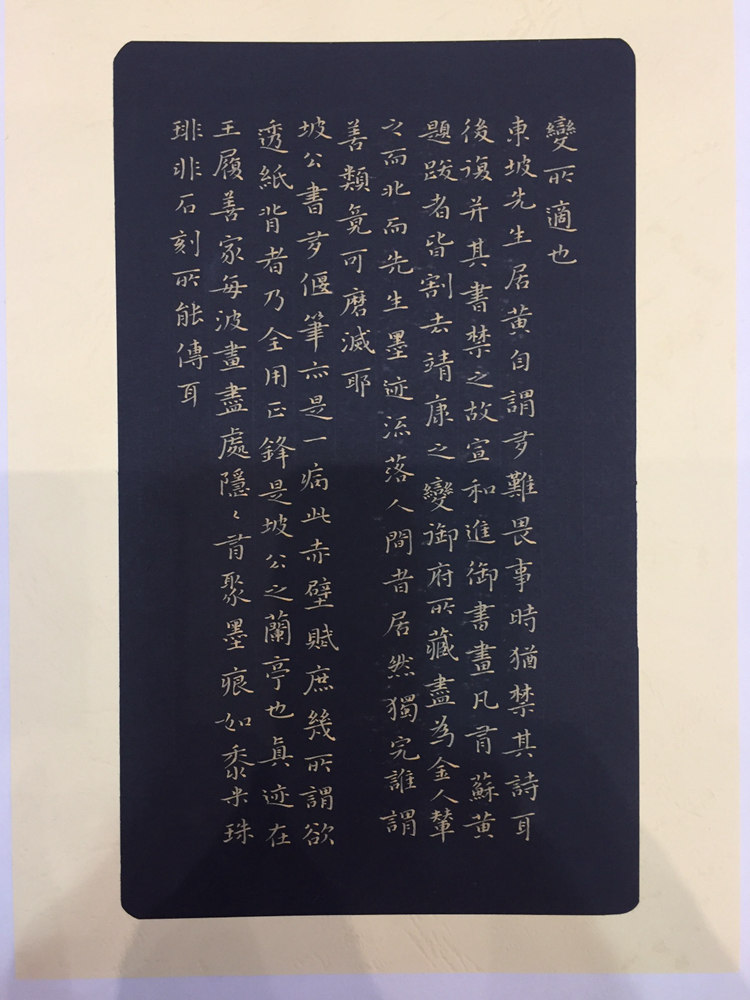 變所適也
東坡先生居黄自謂多難畏事時猶禁其詩耳
後該并其書禁之故宣和進御書畫凡有蘇黄
題跋者皆割去靖康之變御府所藏盡為金人輦
之而北而先生墨迹流落人間者居然獨完誰謂
善類竟可磨滅耶
坡公書多偃筆亦是一病此赤壁賦庶幾所謂欲
透紙背者乃全用正鋒是坡公之蘭亭也真迹在
王履善家每波畫盡處隱〻有聚墨痕如黍米珠
琲非石刻所能傳耳